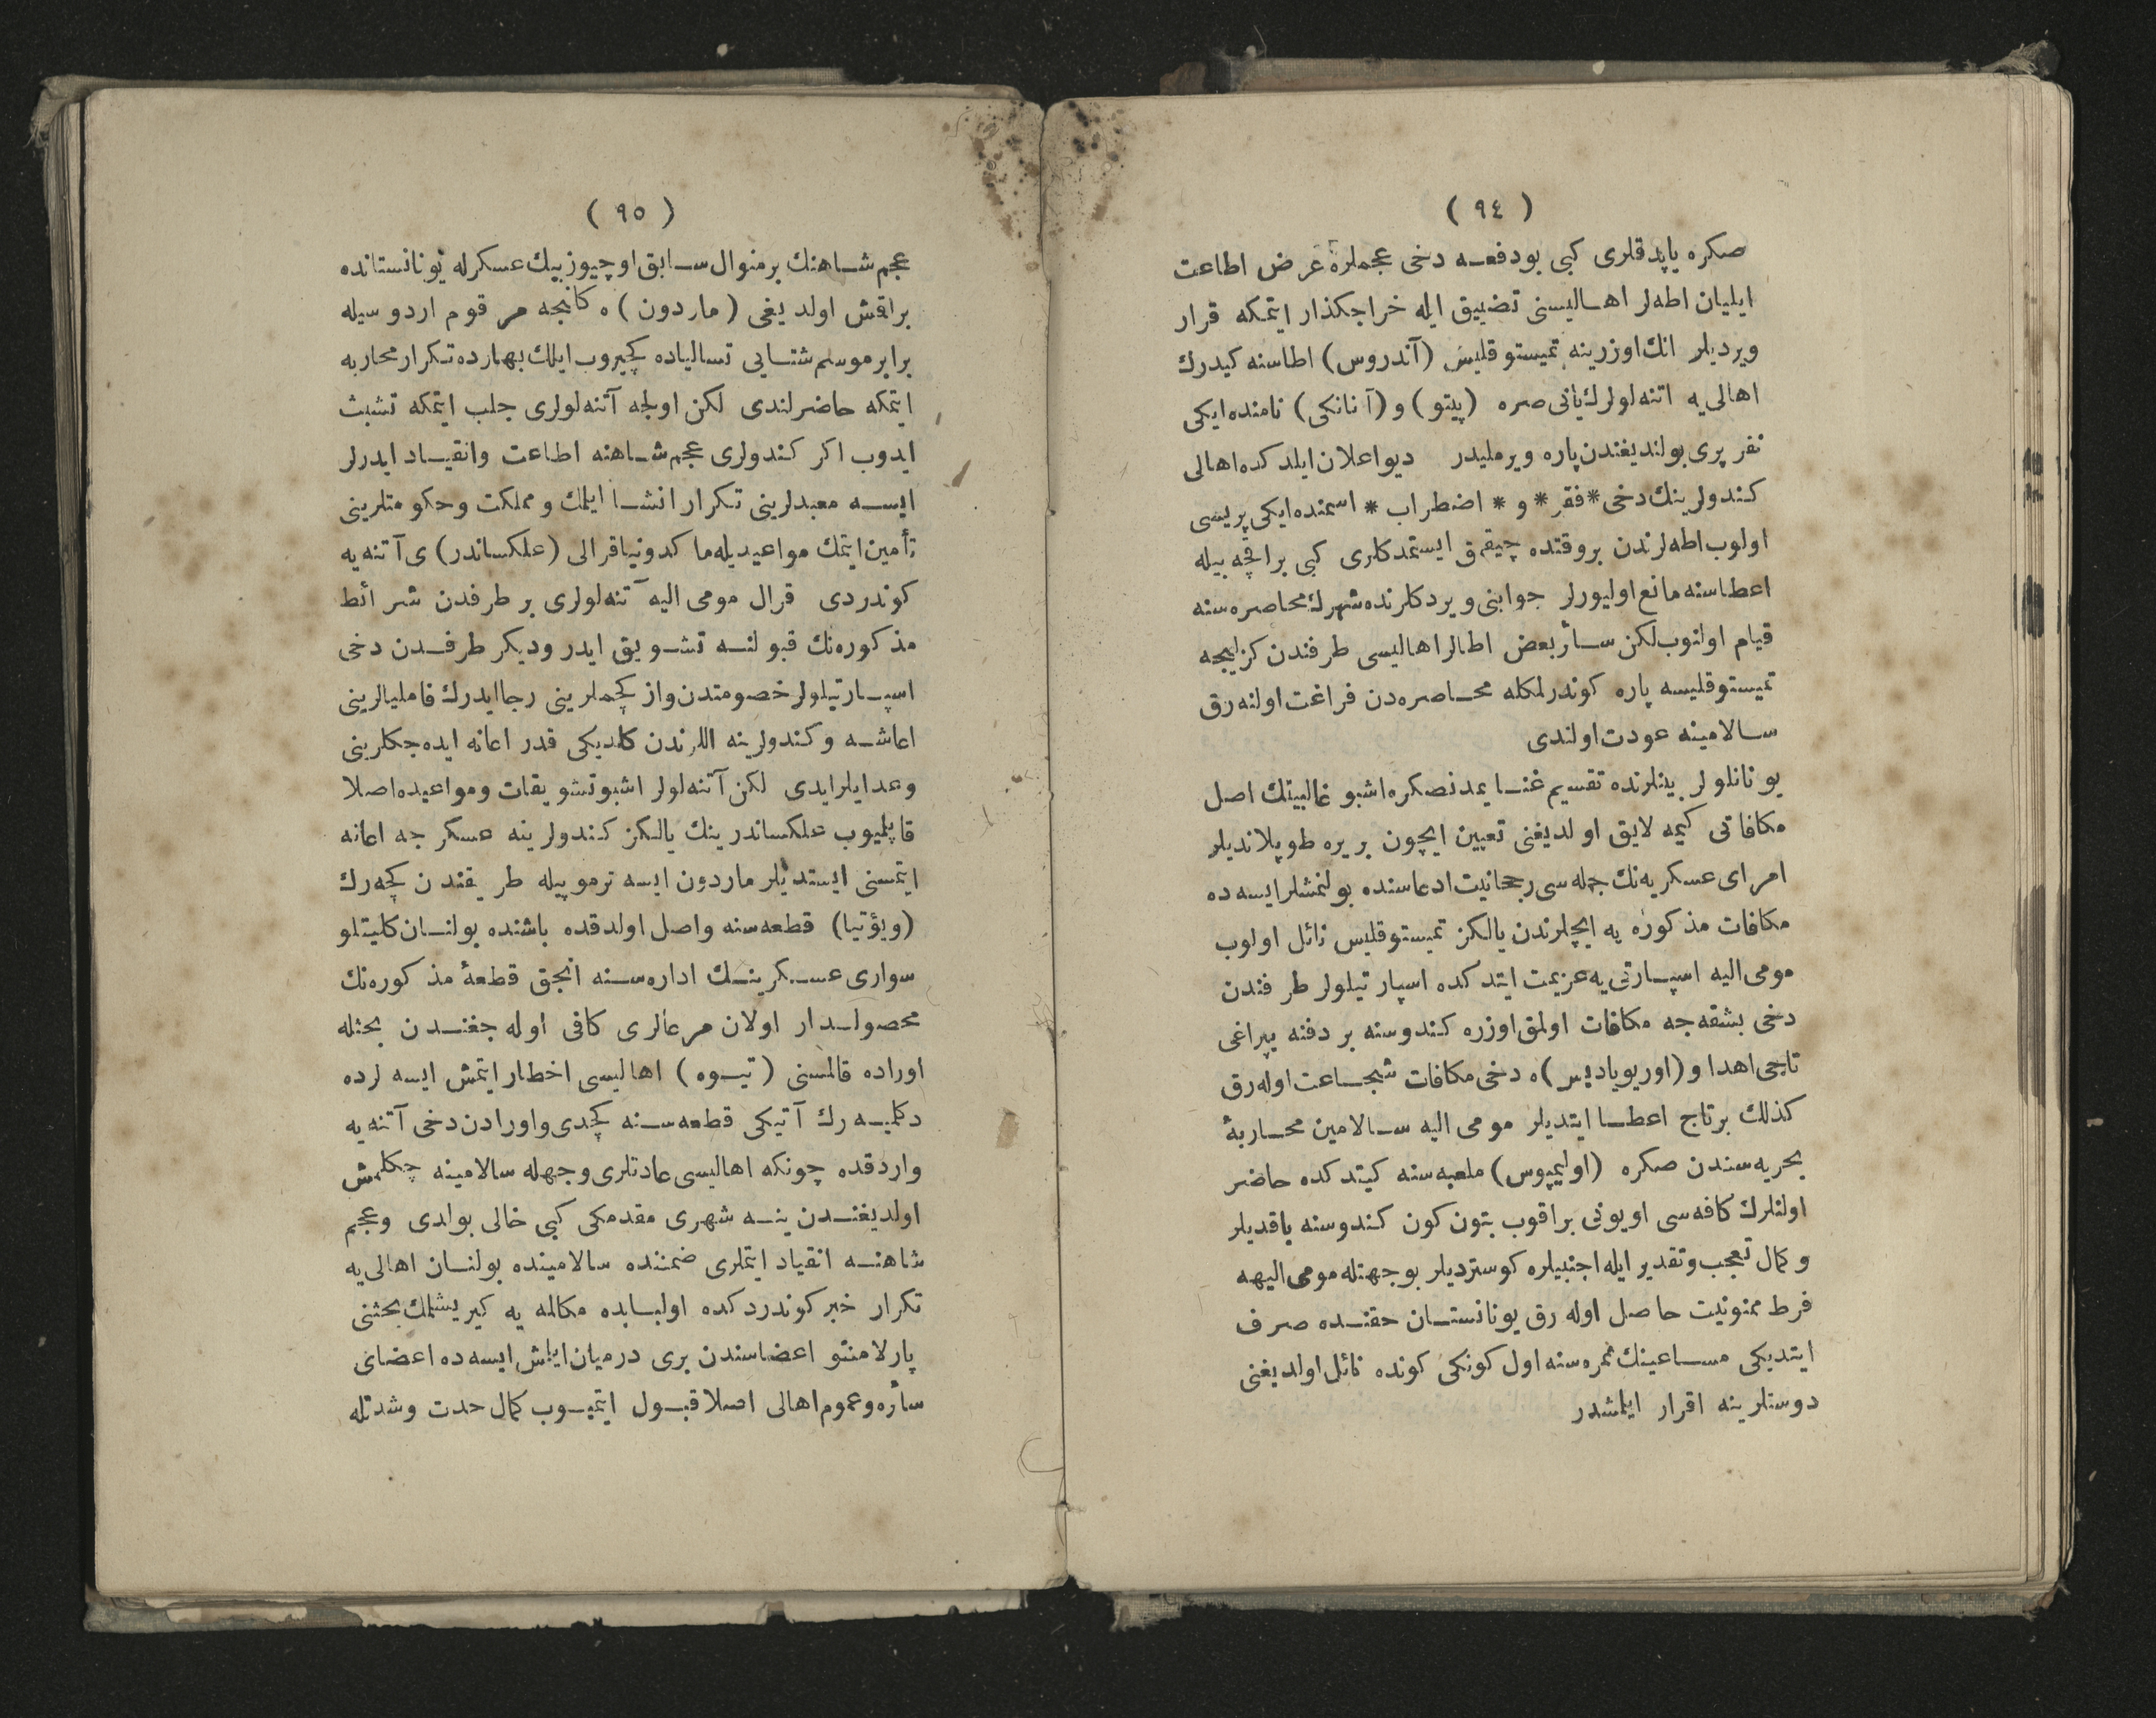 ( ٩٤ )
صکره یاپدقلری کبی بودفعه دخی عجملره عرض اطاعت
ایلیان اطه‌لر اهالیسنی تضییق ایله خراجکذار ایتمکه قرار
ویردیلر انك اوزرینه تمیستوقلیس (آندروس) اطاسنه کیدرك
اهالی‌یه اتنه‌لولرك یانی صره (پیتو) و (آنانکی) نامنده ایکی
نفر پری بولندیغندن پاره ویرملیدر دیو اعلان ایلدکده اهالی
کندولرینك دخی *فقر* و * اضطراب * اسمنده ایکی پریسی
اولوب اطه‌لرندن بروقتده چیقمق ایستمدکلری کبی براقچه بیله
اعطاسنه مانع اولیورلر جوابنی ویردکلرنده شهرك محاصره‌سنه
قیام اولنوب لکن سائر بعض اطالر اهالیسی طرفندن کزلیجه
تمیستوقلیسه پاره کوندرلمکله محاصره‌دن فراغت اولنه‌رق
سالامینه عودت اولندی
یونانلولر بینلرنده تقسیم غنایمدنصکره اشبو غالبیتك اصل
مکافاتی کیمه لایق اولدیغنی تعیین ایچون بریره طوپلاندیلر
امرای عسکریه‌نك جمله‌سی رجحانیت ادعاسنده بولنمشلر ایسه‌ده
مکافات مذکوره‌یه ایچلرندن یالکز تمیستوقلیس نائل اولوب
مومی الیه اسپارتی‌یه عزیمت ایتدکده اسپارتیلولر طرفندن
دخی بشقه‌جه مکافات اولمق اوزره کندوسنه بر دفنه یپراغی
تاجی اهدا و (اوریویادیس)ه دخی مکافات شجاعت اوله‌رق
کذلك برتاج اعطا ایتدیلر مومی الیه سالامین محاربهٔ
بحریه‌سندن صکره (اولیمپوس) ملعبه‌سنه کیتدکده حاضر
اولنلرك کافه‌سی اویونی براقوب بتون کون کندوسنه باقدیلر
و کمال تعجب و تقدیر ایله اجنبیلره کوستردیلر بوجهتله مومی الیهه
فرط ممنونیت حاصل اوله‌رق یونانستان حقنده صرف
ایتدیکی مساعینك ثمره‌سنه اول کونکی کونده نائل اولدیغنی
دوستلرینه اقرار ایلمشدر
( ٩٥ )
عجم شاهنك برمنوال سابق اوچیوزبیك عسکرله یونانستانده
براقمش اولدیغی (ماردون)ه کلنجه مرقوم اردوسیله
برابر موسم شتایی تسالیاده کچیروب ایلك بهارده تکرار محاربه
ایتمکه حاضرلندی لکن اولجه آتنه‌لولری جلب ایتمکه تشبث
ایدوب اکر کندولری عجم شاهنه اطاعت وانقیاد ایدرلر
ایسه معبدلرینی تکرار انشا ایلمك و مملکت وحکومتلرینی
تأمین ایتمك مواعیدیله ماکدونیا قرالی (علکساندر)ی آتنه‌یه
کوندردی قرال مومی الیه آتنه‌لولری بر طرفدن شرائط
مذکوره‌نك قبولنه تشویق ایدر ودیکر طرفدن دخی
اسپارتیلولر خصومتدن وازکچملرینی رجا ایدرك فاملیالرینی
اعاشه و کندولرینه اللرندن کلدیکی قدر اعانه ایده‌جکلرینی
وعد ایلرایدی لکن آتنه‌لولر اشبو تشویقات ومواعیده اصلا
قاپلمیوب علکساندرینك یالکز کندولرینه عسکرجه اعانه
ایتمسنی ایستدیلر ماردون ایسه ترموپیله طریقندن کچه‌رك
(ویؤتیا) قطعه‌سنه واصل اولدقده باشنده بولنان کلیتلو
سواری عسکرینك اداره‌سنه انجق قطعهٔ مذکوره‌نك
محصولدار اولان مرعالری کافی اوله‌جغندن بحثله
اوراده قالمسنی (تیوه) اهالیسی اخطار ایتمش ایسه‌لرده
دکلمیه‌رك آتیکی قطعه‌سنه کچدی واورادن دخی آتنه‌یه
واردقده چونکه اهالیسی عادتلری وجهله سالامینه چکلمش
اولدیغندن ینه شهری مقدمکی کبی خالی بولدی وعجم
شاهنه انقیاد ایتملری ضمننده سالامینده بولنان اهالی‌یه
تکرار خبر کوندردکده اولبابده مکالمه‌یه کیریشلمك بحثنی
پارلامنتو اعضاسندن بری درمیان ایلمش ایسه‌ده اعضای
سائره وعموم اهالی اصلا قبول ایتمیوب کمال حدت وشدتله